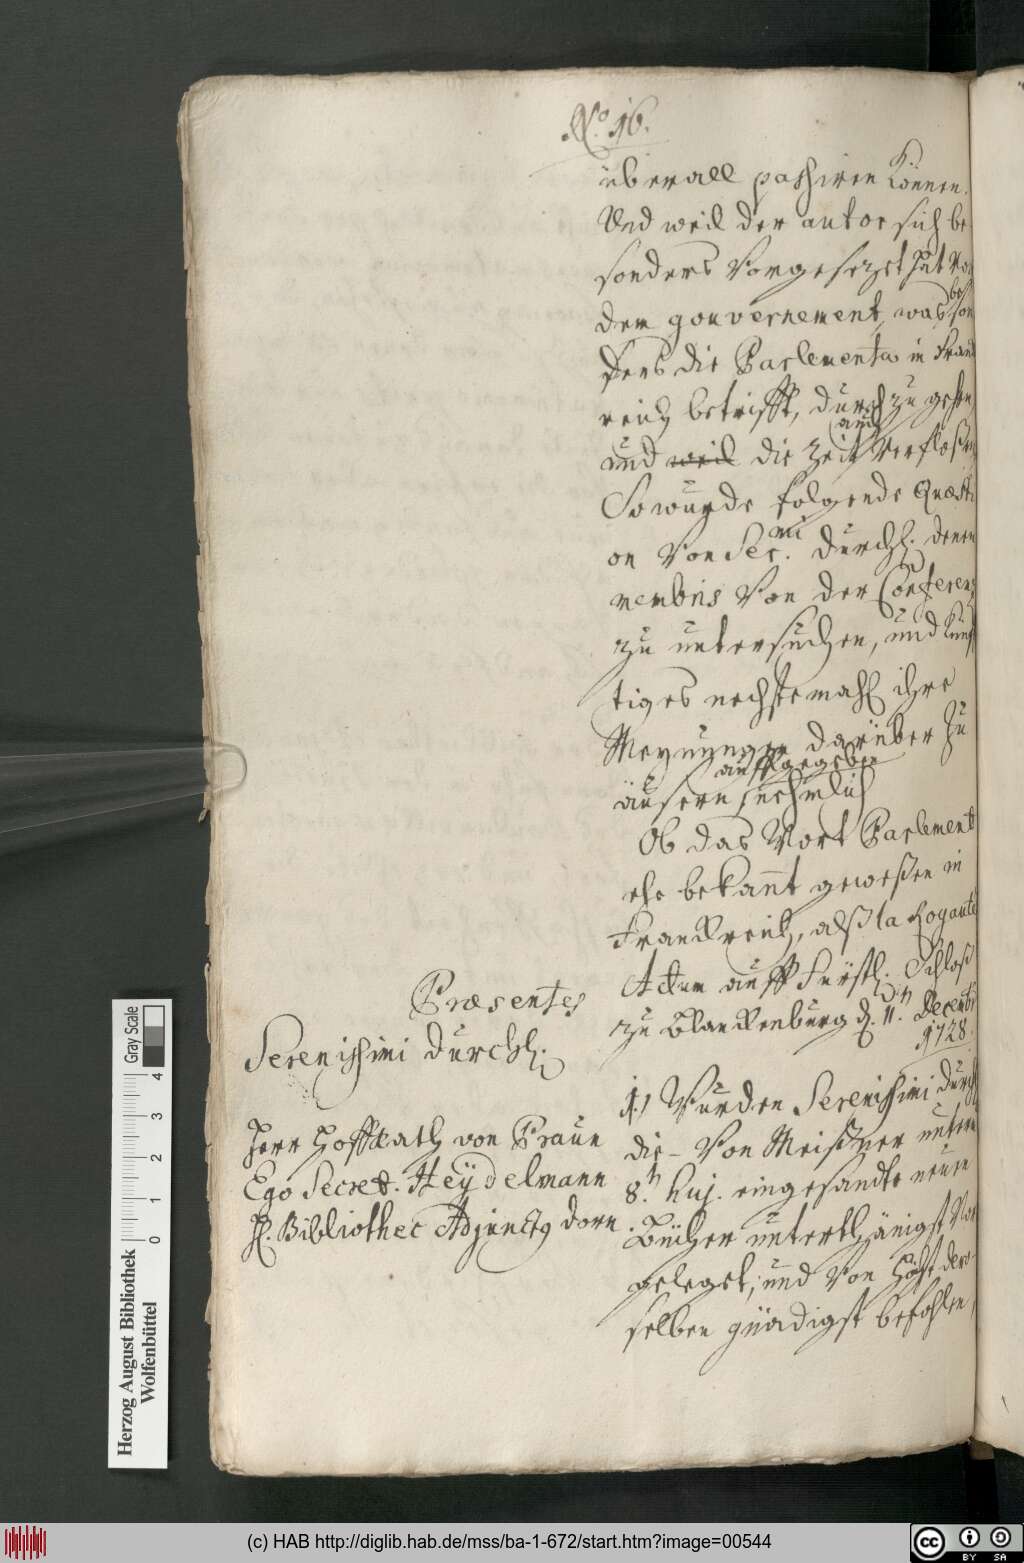 No. 16.
überall passiren können.
Und weil der autor sich be
sonders vorgesezet hat von
dem gouvernement, was beson
ders die Parlementa in Frank
reich betrifft, durchzugehen
und weil die Zeit auch verfloßen
So wurde folgende Quæsti
on von Sermi. Durchl. denen
membris von der Conferenz
zu untersuchen, und künff
tiges nechstemahl ihre
Meynungen darüber zu
äusern auffgegeben nehmlich
Ob das Wort Parlement
ehe bekannt geweßen in
Franckreich, alß la Royauté
Actum auff Fürstl. Schloß
zu Blanckenburg d. 11.ten Decembr
1728.
Præsentes
Serenissimi Durchl.
Herr Hoffrath von Praun
Ego Secret. Heydelmann
H. Bibliothec Adjunctus Dorn.
1.) Wurden Serenissimi Durchl
die von Meißner unterm
8.th huj. eingesandte neuen
Bücher unterthänigst vor
geleget, und von Höchst dero-
selben gnädigst befohlen,
Herzog August Bibliothek
Wolfenbüttel
0 1 2 3 4
Gray Scale
(c) HAB http://diglib.hab.de/mss/ba-1-672/start.htm?image=00544
cc BY SA